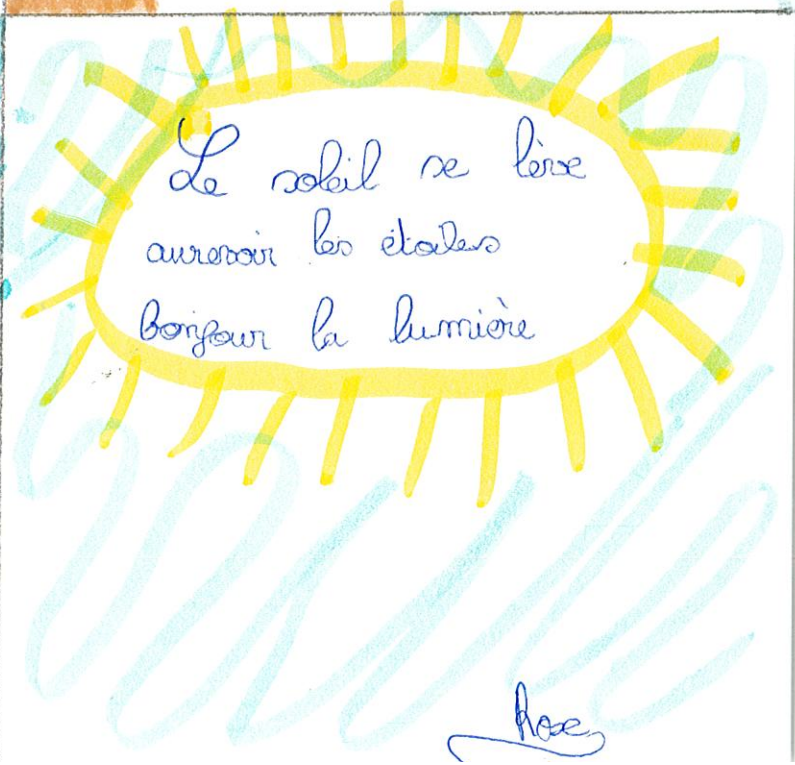 Le soleil se lève
aurevoir les étoiles
bonjour la lumière
Rose